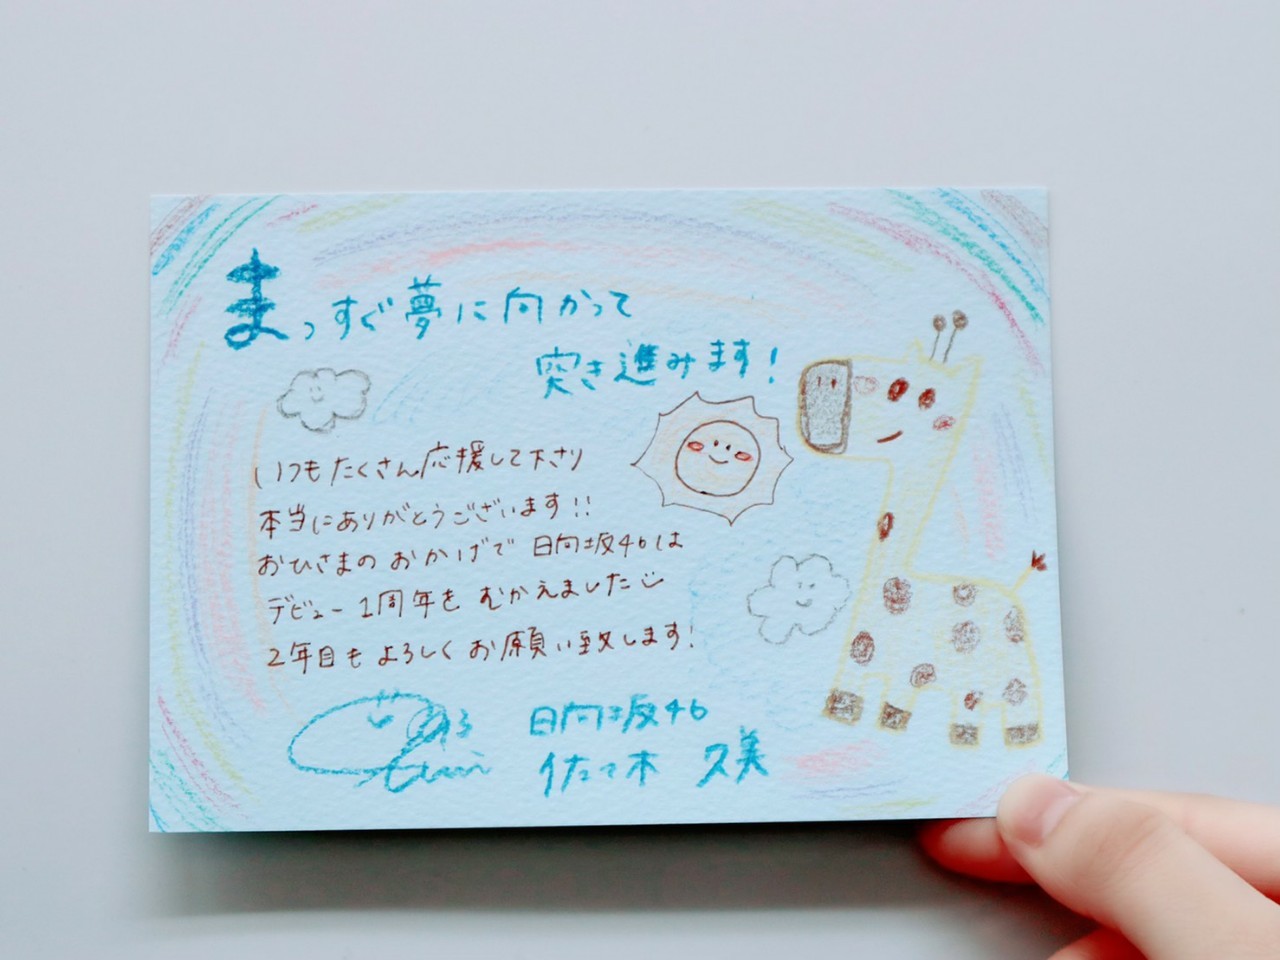 まっすぐ夢に向かって
突き進みます!
いつもたくさん応援して下さり
本当にありがとうございます!!
おひさまのおかげで 日向坂46は
デビュー1周年を むかえました
2年目も よろしく お願い致します!
日向坂46
佐々木 久美